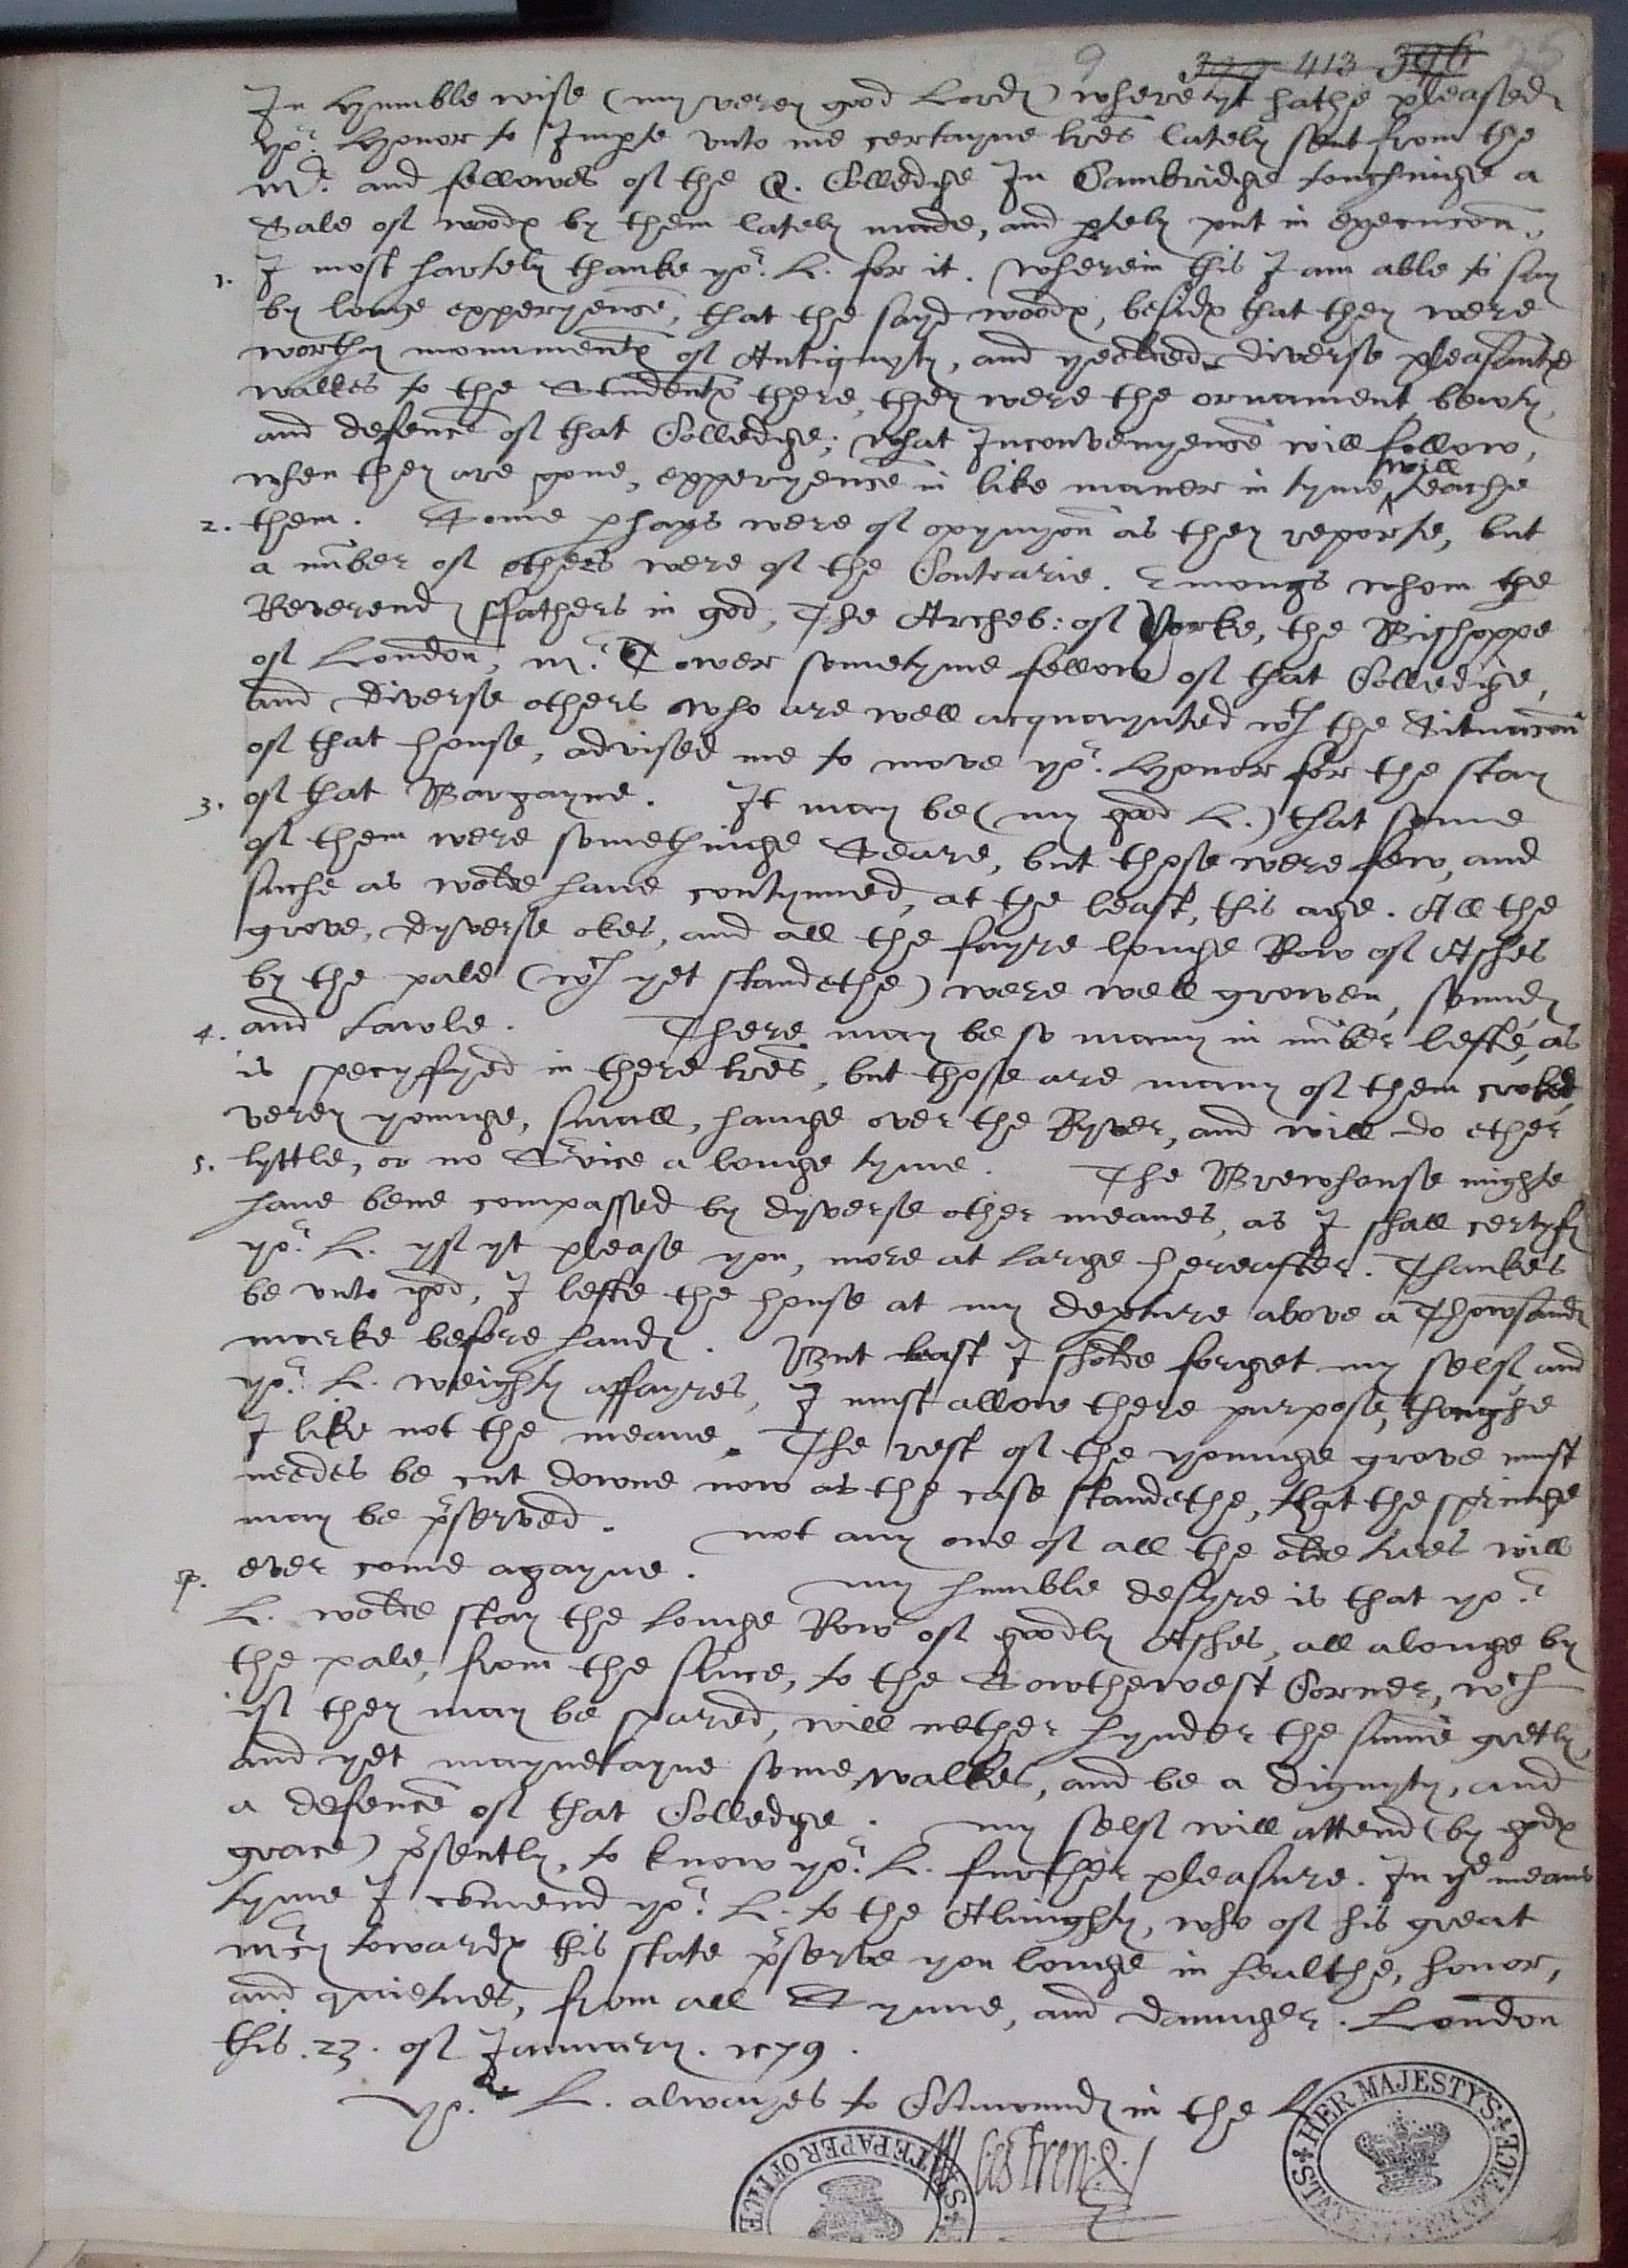 9 413 396
In Hummble wise (my verey good Lord) where yt hathe pleased
yor. Honor to Imparte unto me certayne lres lately sent from the
Mr. and fellowes of the Q. Colledge In Cambridge touchinge a
Sale of woodes by them lately made, and partely put in execucon,
1. I most hartely thanke yor. L. for it. Wherein this I am able to say
by longe experyence, that the sayd woodes, besides that they were
worthy monumentes of Antiquyty, and yeelded diverse pleasante
walkes to the Studentes there, they were the ornament bewty,
and defence of that Colledge; what Inconvenyence will follow,
when they are gone, experyence in like maner in tyme will teache
2. them. Some perhaps were of opynyon as they reporte, but
a nuber of others were of the Contrarie. Emongs whom the
Reverend ffathers in god, The Archeb: of Yorke, the Bishoppe
of London, Mr. Tower sometyme fellow of that Colledge,
and diverse others who are well acquaynted wth the Situacon
of that house, advised me to move yor. Honor for the stay
3. of that Bargayne. It may be (my good L.) that some
of them were somethinge Seare, but those were few, and
suche as wolde have contynued, at the least, this age. All the
grove, dyverse okes, and all the fayre longe Row of Ashes
by the pale (wch yet standethe) were well growen, sound
4. and taule. There may be so many in nuber lefte, as
is specyfyed in there lres, but those are many of them croked,
verey younge, small, hange over the Ryver, and will do ether
5. lyttle, or no Service a longe tyme. The Brewhouse mighte
have bene compassed by dyverse other meanes, as I shall certyfy
yor. L. yf yt please you, more at large hereafter. Thankes
be unto god, I lefte the house at my departure above a Thowsand
marke before hand. But least I sholde forget my self and
yor. L. weighty affayres, I must allow there purpose, thoughe
I like not the meane. The rest of the younge grove must
needes be cut downe now as the case standethe, that the springe
may be preserved. not any one of all the olde trees will
ever come agayne. my humble desyre is that yor.
L. wolde stay the longe Row of goodly Ashes, all alonge by
the pale, from the sluce, to the Sowthewest Corner, wch
if they may be spared, will nether hynder the same gretly,
and yet maynetayne some walkes, and be a dignyty, and
a defence of that Colledge. my self will attend (by godes
grace) presently, to know yor. L. further pleasure. In ye meane
tyme I comend yor. L. to the Almighty, who of his great
mercy towardes this state preserve you longe in healthe, honor,
and quietnes, from all Synne, and daunger. London
this .23. of January. 1579.
yor. L. alwayes to Comaund in the L.
W Cestren.
HER MAJESTY'S STATE PAPER OFFICE
HER MAJESTY'S STATE PAPER OFFICE